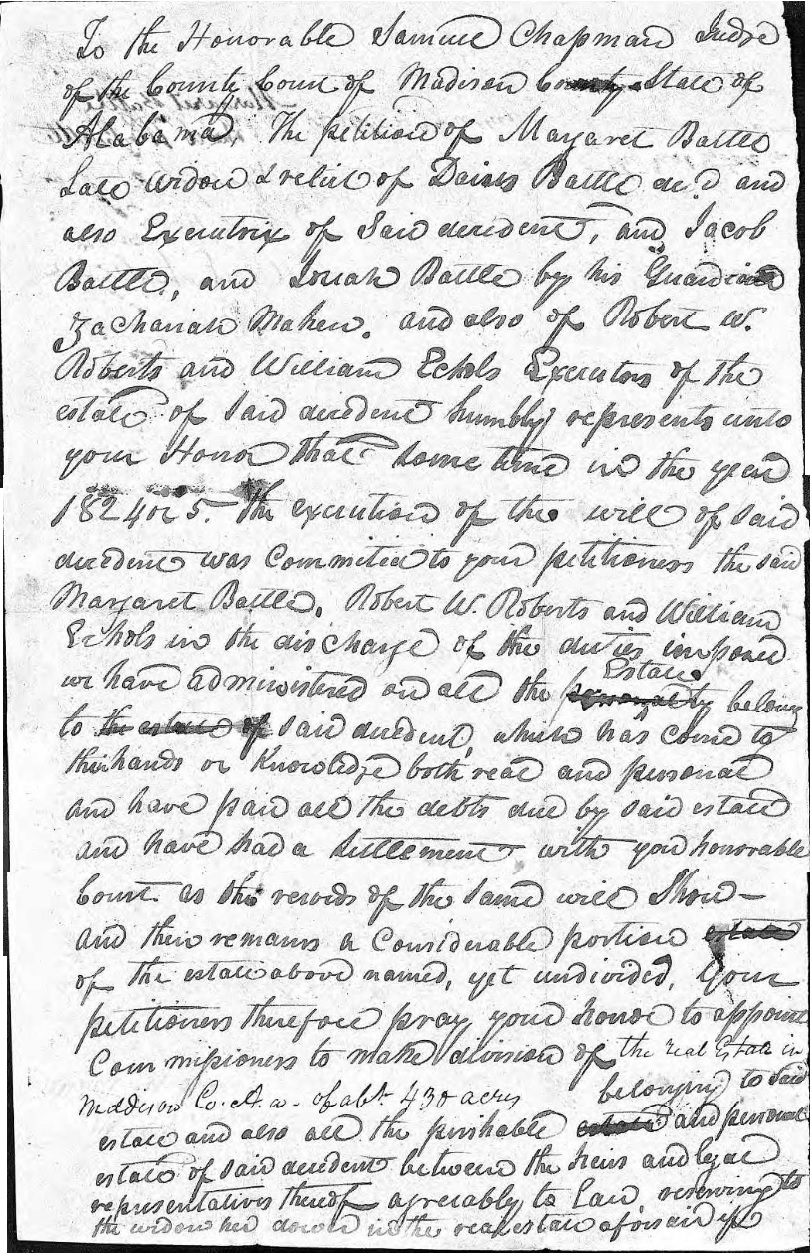 To the Honorable Samuel Chapman Judge
of the County Court of Madison County State of
Alabama The petition of Margaret Battle
Late widow & relict of Davis Battle dec'd and
also Executrix of Said decedent, and Jacob
Battle, and Josiah Battle by his Guardian
Zachariah Maken. and also of Robert W.
Roberts and William Echols Executors of the
estate of said decedent humbly represents unto
your Honor that some time in the year
1824 or 5. The execution of the will of said
decedent was Committed to your petitioners the said
Margaret Battle, Robert W. Roberts and William
Echols in the discharge of the duties imposed
we have administered on all the Estate belong
to the estate of said decedent, which has come to
their hands or Knowledge both real and personal
and have paid all the debts due by said estate
and have had a Settlement with your honorable
Court as the records of the same will Show—
and there remains a Considerable portion estate
of the estate above named, yet undivided, Your
petitioners therefore pray your honor to appoint
Commissioners to make division of the real Estate in
Maddison Co. Aa. of abt. 430 acres belonging to said
estate and also all the perishable estate and personal
estate of said decedent between the heirs and legal
representatives thereof agreeably to Law, reserving to
the widow her dower in the real estate aforesaid